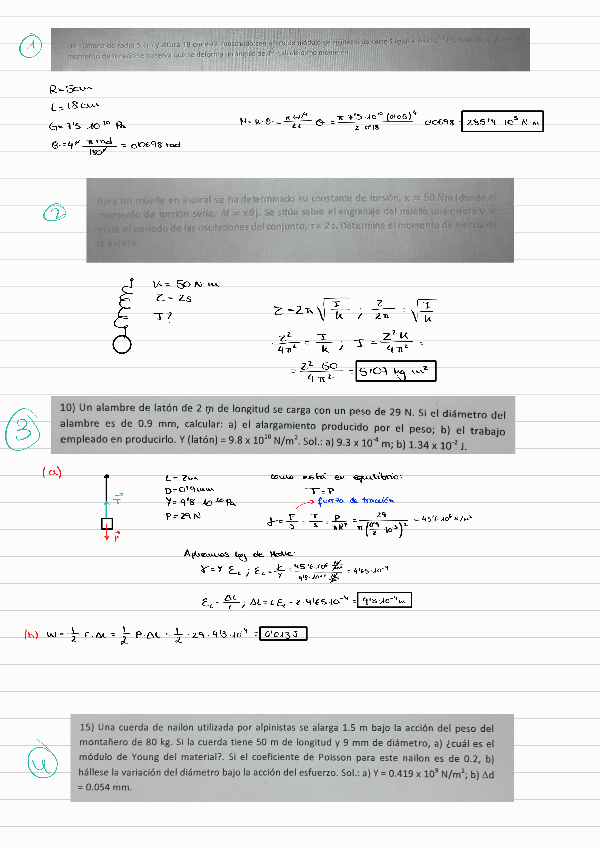 1
momento de torsión se observa que se deforma un ángulo de 4º. Calcule dicho momento.
R=5cm
L=18cm
G=7'5·10¹⁰ Pa
θ=4º π rad/180º = 0'0698 rad
0'0698 = 285'4·10³ N·m
2
Para un muelle en espiral se ha determinado su constante de torsión, κ = 50 Nm (donde el
momento de torsión sería, M = κθ). Se sitúa sobre el engranaje del muelle una esfera y se
mide el periodo de las oscilaciones del conjunto, τ = 2 s. Determine el momento de inercia de
la esfera.
K = 50 N·m
τ = 2s
I?
τ = 2π √(I/K) ; τ/2π = √(I/K)
τ²/4π² = I/K ; I = τ²K/4π² =
= 2²·50/4π² = 5'07 kg m²
3
10) Un alambre de latón de 2 m de longitud se carga con un peso de 29 N. Si el diámetro del
alambre es de 0.9 mm, calcular: a) el alargamiento producido por el peso; b) el trabajo
empleado en producirlo. Y (latón) = 9.8 x 10¹⁰ N/m². Sol.: a) 9.3 x 10⁻⁴ m; b) 1.34 x 10⁻² J.
(a)
T
P
L = 2m
D=0'9mm
Y=9'8·10¹⁰ Pa
P=29N
como está en equilibrio:
T=P
fuerza de tracción
Aplicamos ley de Hooke:
ε_L = ΔL/L ; ΔL = L ε_L = 2·4'65·10⁻⁴ = 9'3·10⁻⁴ m
(b) W = 1/2 F·ΔL = 1/2 P·ΔL = 1/2 ·29·9'3·10⁻⁴ = 0'013 J
4
15) Una cuerda de nailon utilizada por alpinistas se alarga 1.5 m bajo la acción del peso del
montañero de 80 kg. Si la cuerda tiene 50 m de longitud y 9 mm de diámetro, a) ¿cuál es el
módulo de Young del material?. Si el coeficiente de Poisson para este nailon es de 0.2, b)
hállese la variación del diámetro bajo la acción del esfuerzo. Sol.: a) Y = 0.419 x 10⁹ N/m²; b) Δd
= 0.054 mm.